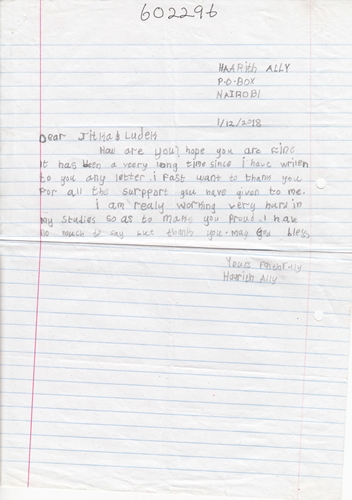 602296
HAARith ALLY
P.O-BOX
NAIROBI
1/12/2018
Dear Jitka & Ludek
How are you? hope you are Fine
it has been a veery long time since i have writen
to you any letter. i Fast want to thank you
For all the surpport you have given to me.
i am realy working very hard in
my studies so as to make you proud. i have
no much to say but thank you. may God bless
Yours faithfully
Haarith Ally